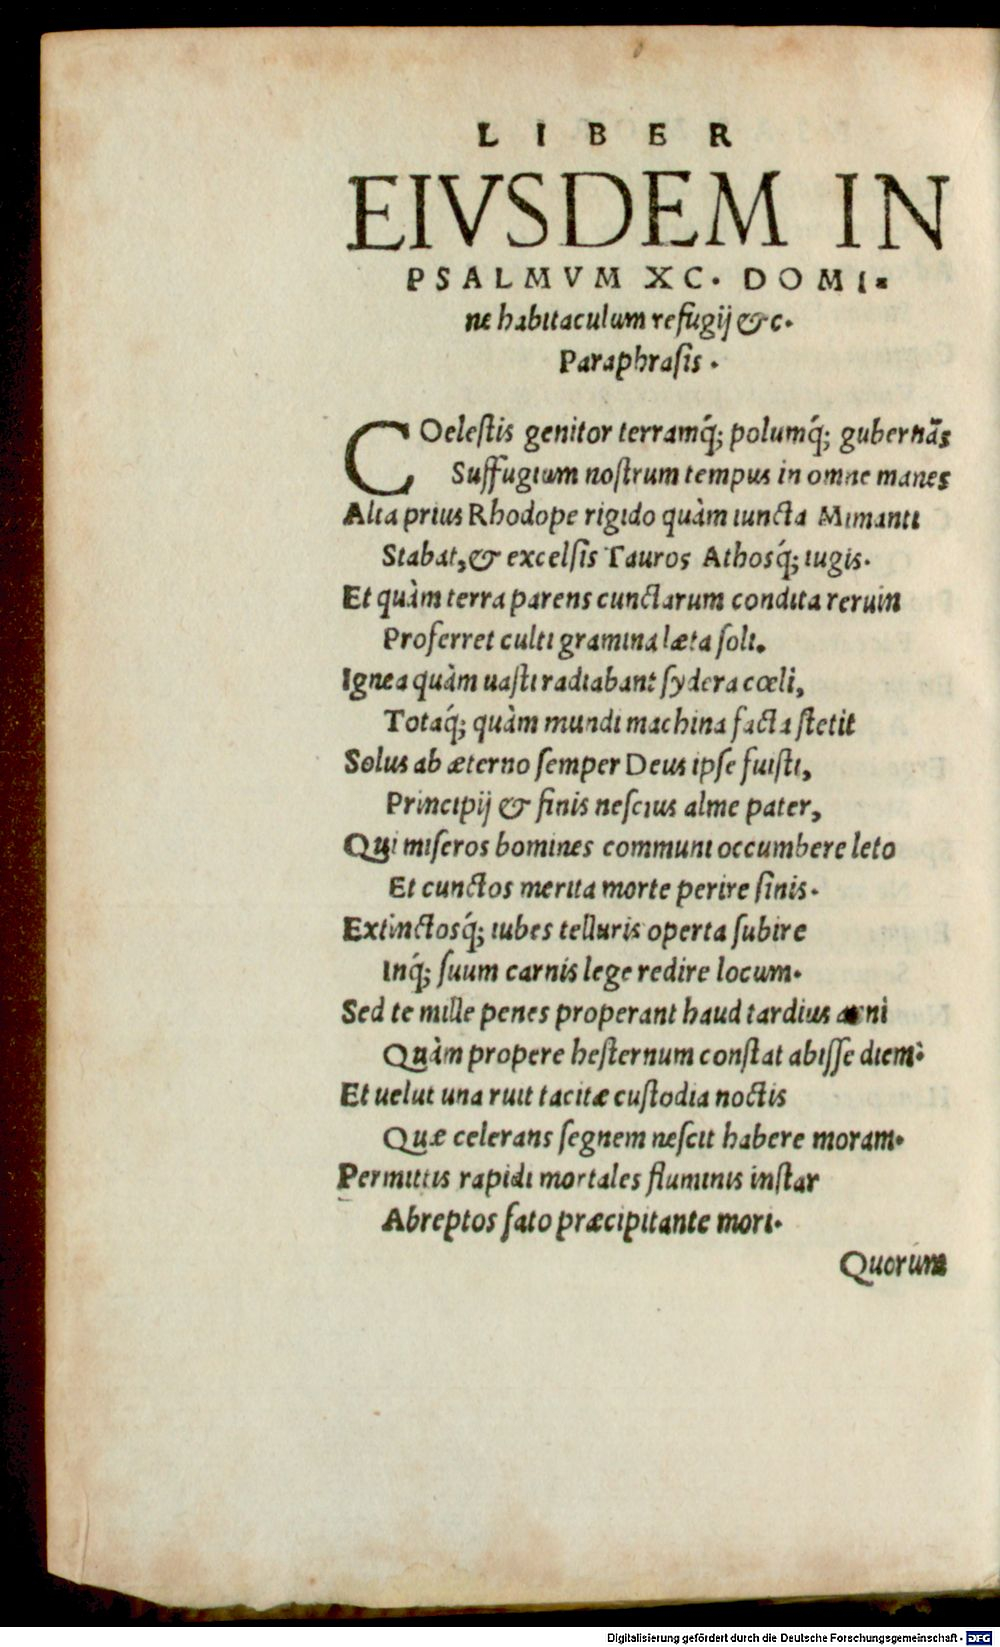 LIBER
EIVSDEM IN
PSALMVM XC. DOMI-
ne habitaculum refugij &c.
Paraphrasis.
COelestis genitor terramq́; polumq́; gubernãs
Suffugium nostrum tempus in omne manes
Alta prius Rhodope rigido quàm iuncta Mimanti
Stabat, & excelsis Tauros Athosq́; iugis.
Et quàm terra parens cunctarum condita rerum
Proferret culti gramina læta soli.
Ignea quàm uasti radiabant sydera cœli,
Totaq́; quàm mundi machina facta stetit
Solus ab æterno semper Deus ipse fuisti,
Principij & finis nescius alme pater,
Qui miseros homines communi occumbere leto
Et cunctos merita morte perire sinis.
Extinctosq́; iubes telluris operta subire
Inq́; suum carnis lege redire locum.
Sed te mille penes properant haud tardius anni
Quàm propere hesternum constat abisse diem:
Et uelut una ruit tacitæ custodia noctis
Quæ celerans segnem nescit habere moram.
Permittis rapidi mortales fluminis instar
Abreptos fato præcipitante mori.
Quorum
Digitalisierung gefördert durch die Deutsche Forschungsgemeinschaft - DFG